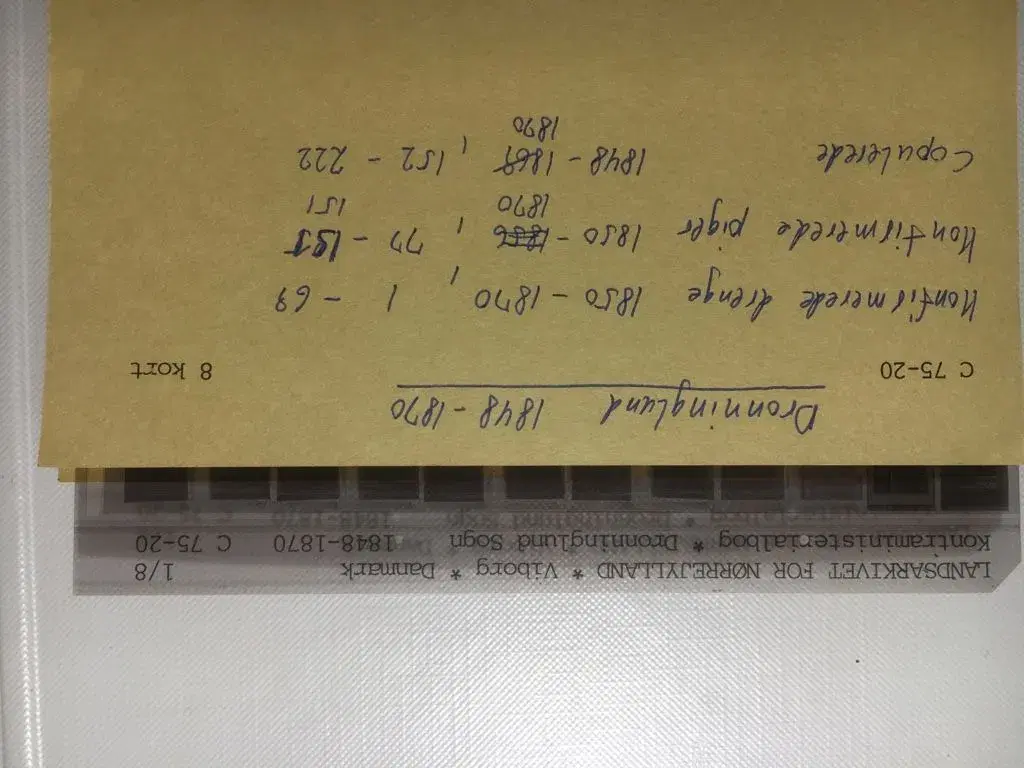 LANDSARKIVET FOR NØRREJYLLAND * Viborg * Danmark 1/8
Kontraministerialbog * Dronninglund Sogn 1848-1870 C 75-20
Dronninglund 1848-1870
C 75-20 8 kort
Konfirmerede drenge 1850-1870, 1-69
Konfirmerede piger 1850-1856, 77-155
1870 151
Copulerede 1848-1869, 152-222
1870